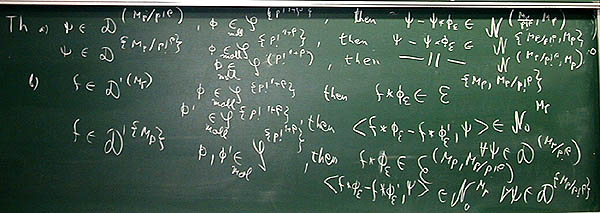 Th a) ψ ∈ D^(Mp/p!^ρ), φ ∈ φ_moll^{p!^{1+ρ}}, then ψ − ψ*φ_ε ∈ N^(Mp/p!^ρ, Mp)
ψ ∈ D^{Mp/p!^ρ}, φ ∈ φ_moll^{p!^{1+ρ}}, then ψ − ψ*φ_ε ∈ N^{Mp/p!^ρ, Mp}
φ ∈ φ_moll^(p!^{1+ρ}), then —||— N^(Mp/p!^ρ, Mp)
b) f ∈ D'^(Mp), φ ∈ φ_moll^{p!^{1+ρ}} then f*φ_ε ∈ E^{Mp, Mp/p!^ρ}
φ, φ' ∈ φ_moll^{p!^{1+ρ}}, then <f*φ_ε − f*φ'_ε, ψ> ∈ N_0^Mp
f ∈ D'^{Mp} φ, φ' ∈ φ_mol^{p!^{1+ρ}}, then f*φ_ε ∈ E^(Mp, Mp/p!^ρ) ∀ψ ∈ D^(Mp/p!^ρ)
<f*φ_ε − f*φ'_ε, ψ> ∈ N_0^Mp ∀ψ ∈ D^{Mp/p!^ρ}